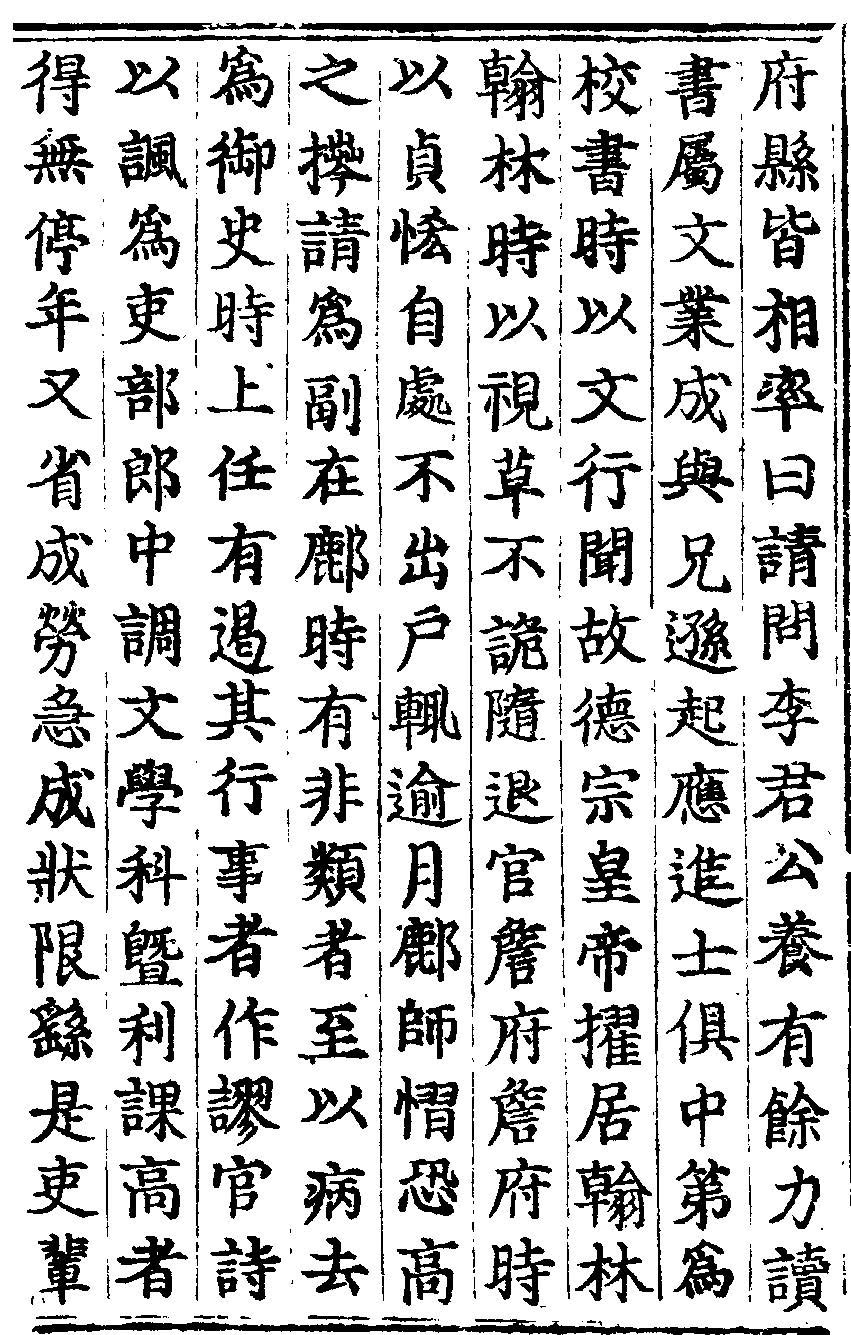 府縣皆相率曰請問李君公養有餘力讀
書屬文業成與兄遜起應進士俱中第爲
校書時以文行聞故德宗皇帝擢居翰林
翰林時以視草不詭隨退官詹府詹府時
以貞恡自處不出戶輒逾月鄜師慴恐高
之攑請爲副在鄜時有非類者至以病去
爲御史時上任有遏其行事者作謬官詩
以諷爲吏部郎中調文學科曁利課高者
得無停年又省成勞急成狀限繇是吏輩